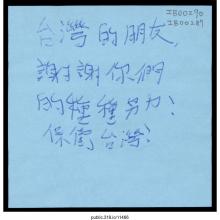 IB00290
IB00289
台灣的朋友,
謝謝你們
的種種努力!
保衛台灣!
public.318.io/11466